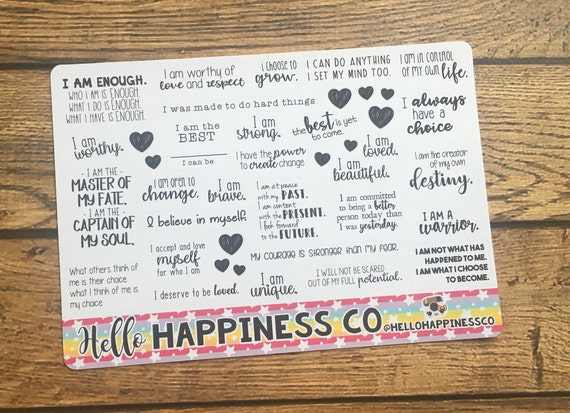 I AM ENOUGH.
WHO I AM IS ENOUGH.
WHAT I DO IS ENOUGH.
WHAT I HAVE IS ENOUGH.
I am worthy of
love and respect
I choose to
grow.
I CAN DO ANYTHING
I SET MY MIND TOO.
I AM IN CONTROL
OF MY OWN life.
I was made to do hard things.
I always
have a
choice
I am
worthy.
I am the
BEST
I can be.
I am
strong.
the best is yet
to come.
I am
loved.
I have the power
to create change.
I am
beautiful.
I am the creator
of my own
destiny.
- I AM THE -
MASTER OF
MY FATE.
- I AM THE -
CAPTAIN OF
MY SOUL.
I AM OPEN TO
change.
I am
brave.
I am at peace
with my PAST.
I am content
with the PRESENT.
I look forward
to the FUTURE.
I am committed
to being a better
person today than
I was yesterday.
I believe in myself.
I AM A
WARRIOR.
I accept and love
myself
for who I am.
My courage is stronger than my fear.
I AM NOT WHAT HAS
HAPPENED TO ME.
I AM WHAT I CHOOSE
TO BECOME.
What others think of
me is their choice
what I think of me is
my choice
I deserve to be loved.
I am
unique.
I WILL NOT BE SCARED
OUT OF MY FULL potential.
Hello HAPPINESS CO
@HELLOHAPPINESSCO